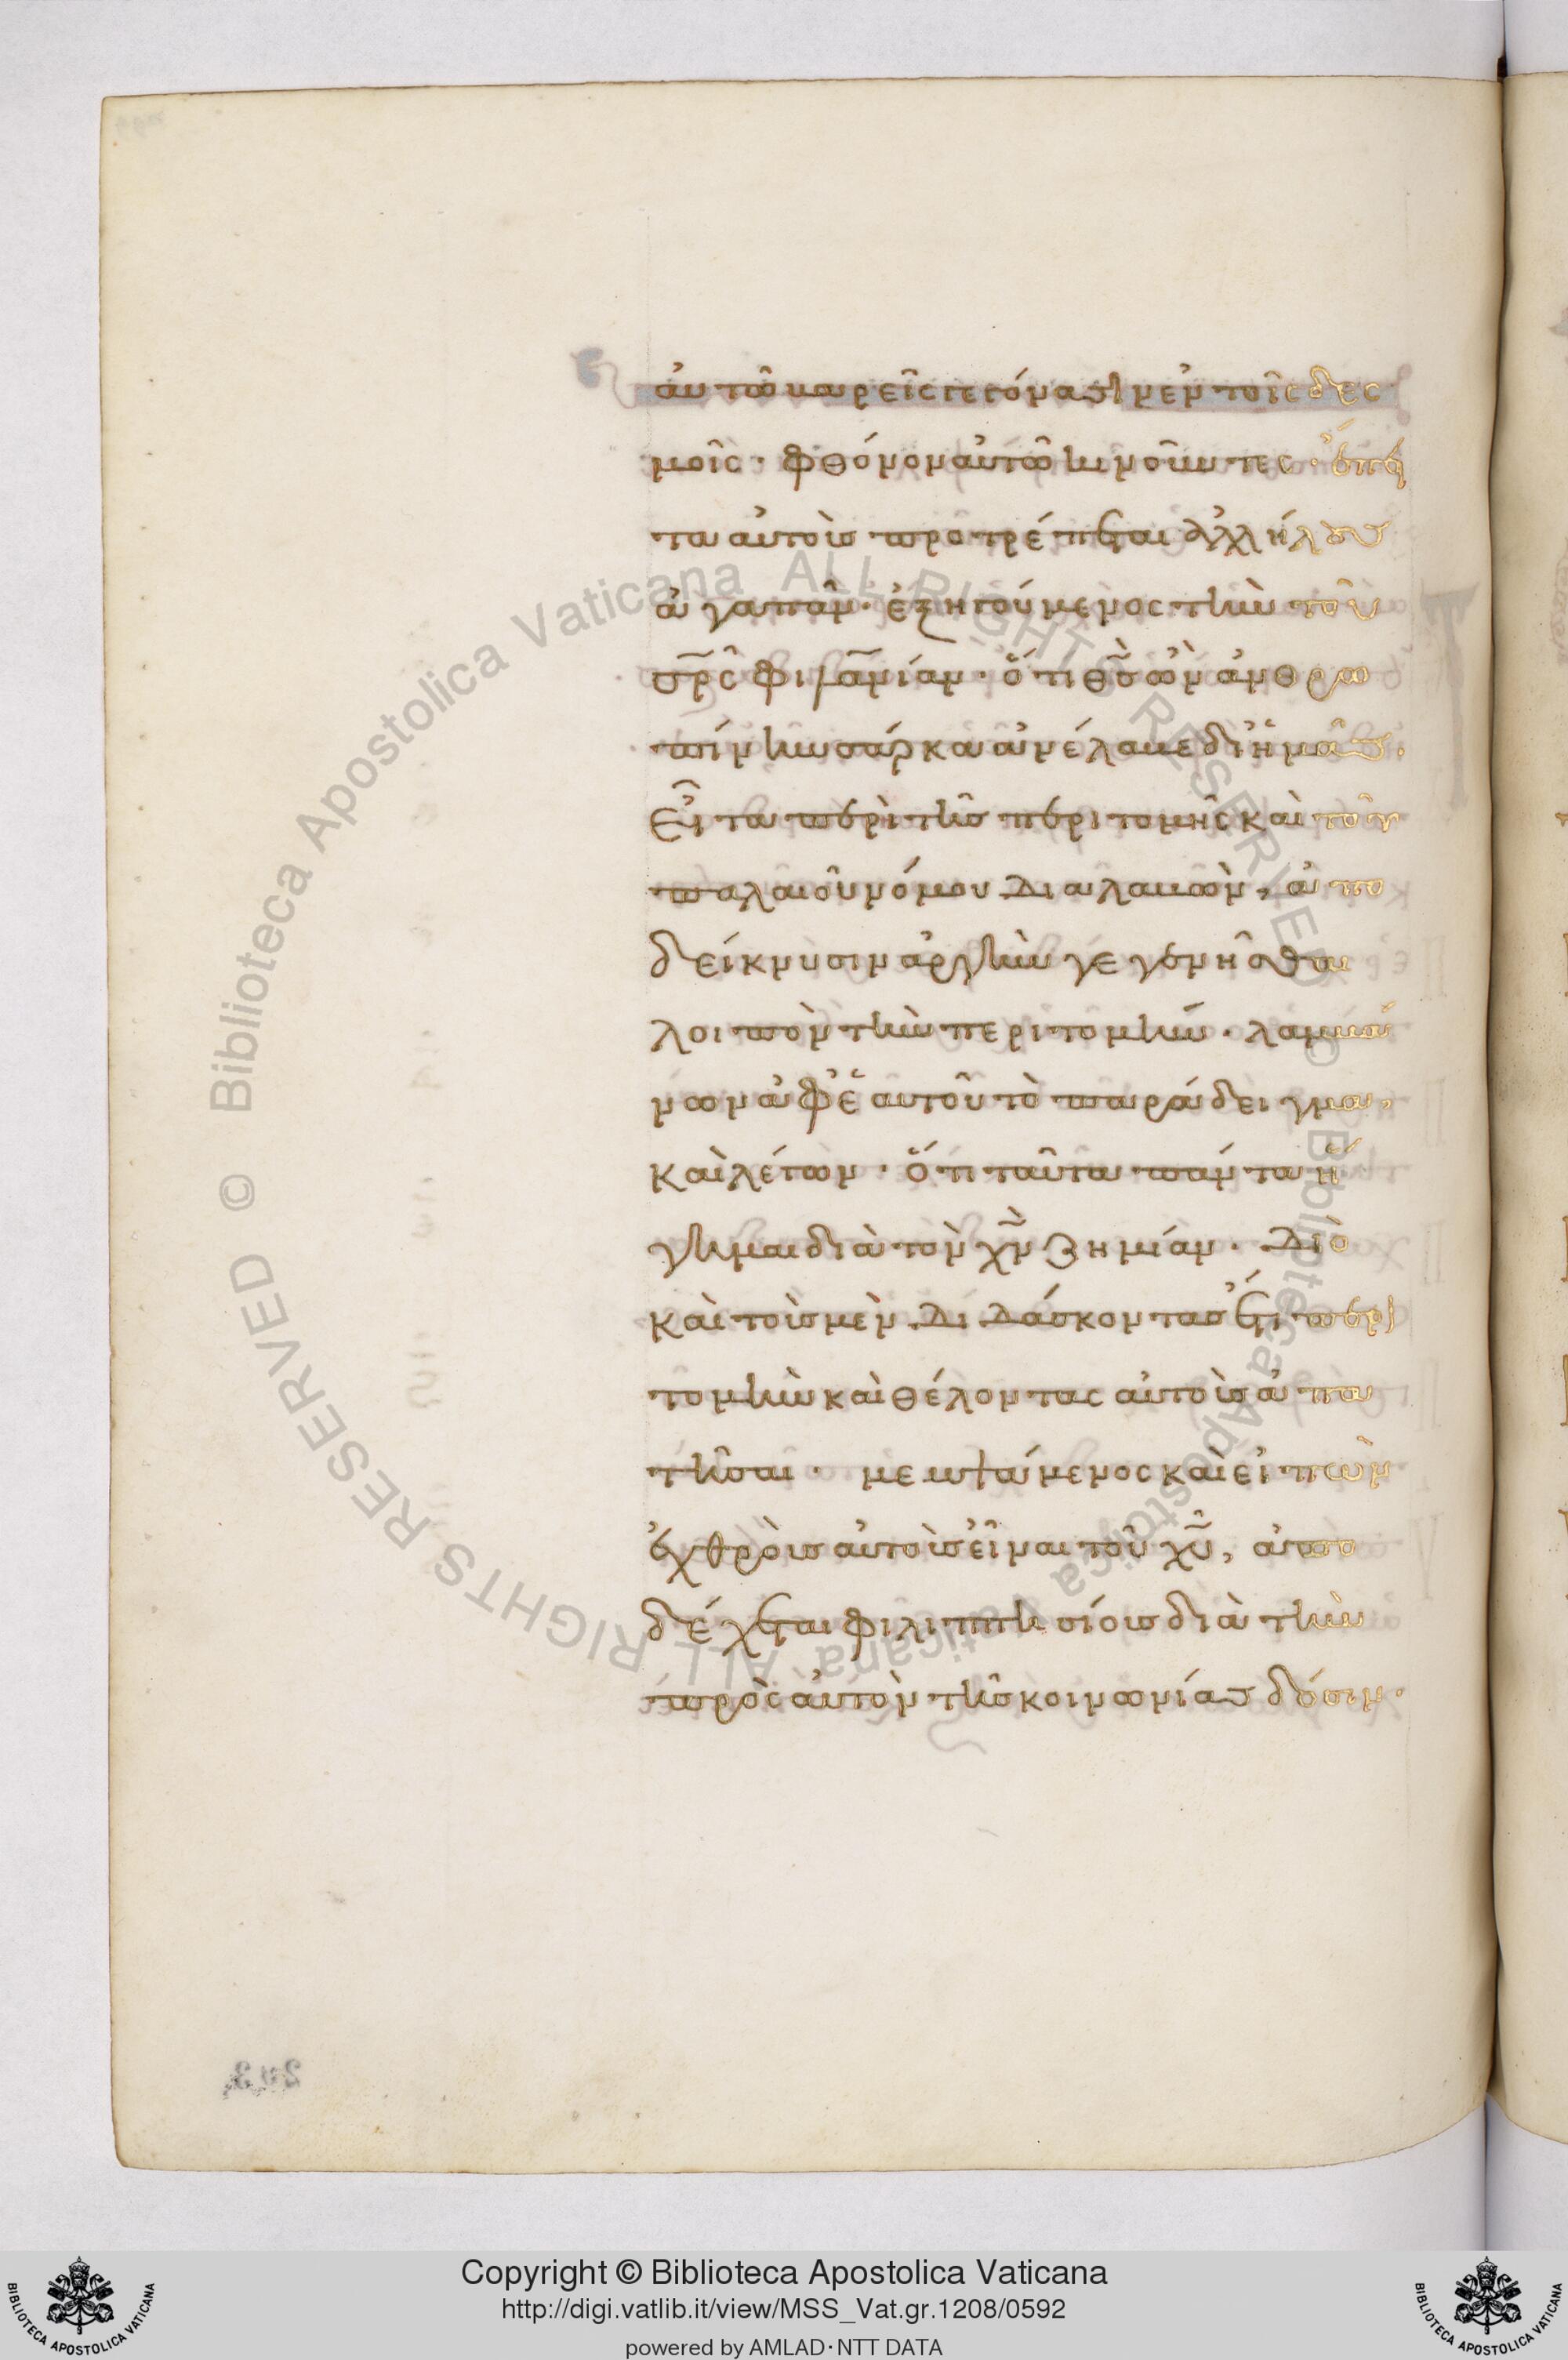 αὐτῶ βαρεῖς γεγόνασι μὲν τοῖς δεσ
μοῖς· φθόνον αὐτῶ κινοῦντες· ἔπει
τα αὐτοὺς προτρέπεται ἀλλήλους
ἀγαπᾶν· ἐξηγούμενος τὴν τοῦ
σρ̅ς φιλανίαν· ὅτι θς̅ ὢν ἀνθρω
πίνην σάρκα ἀνέλαβε δι' ἡμᾶς·
Εἶτα περὶ τῆς περιτομῆς καὶ τοῦ
παλαιοῦ νόμου διαλαβὼν, ἀπο
δείκνυσιν ἀργὴν γεγενῆσθαι
λοιπὸν τὴν περιτομήν· λαμβά
νων ἀφ' ἑαυτοῦ τὸ παράδειγμα,
καὶ λέγων· ὅτι ταῦτα πάντα ἥ
γημαι διὰ τὸν χν̅ ζημίαν· Διὸ
καὶ τοὺς μὲν διδάσκοντας ἔτι περι
τομὴν καὶ θέλοντας αὐτοὺς ἀπα
τῆσαι· μεμψάμενος καὶ εἰπὼν
ἐχθροὺς αὐτοὺς εἶναι τοῦ χυ̅, ἀπο
δέχεται φιλιππησίους διὰ τὴν
πρὸς αὐτὸν τῆς κοινωνίας δόσιν·
Copyright © Biblioteca Apostolica Vaticana
http://digi.vatlib.it/view/MSS_Vat.gr.1208/0592
powered by AMLAD·NTT DATA
BIBLIOTECA APOSTOLICA VATICANA
BIBLIOTECA APOSTOLICA VATICANA
© Biblioteca Apostolica Vaticana ALL RIGHTS RESERVED
© Biblioteca Apostolica Vaticana ALL RIGHTS RESERVED